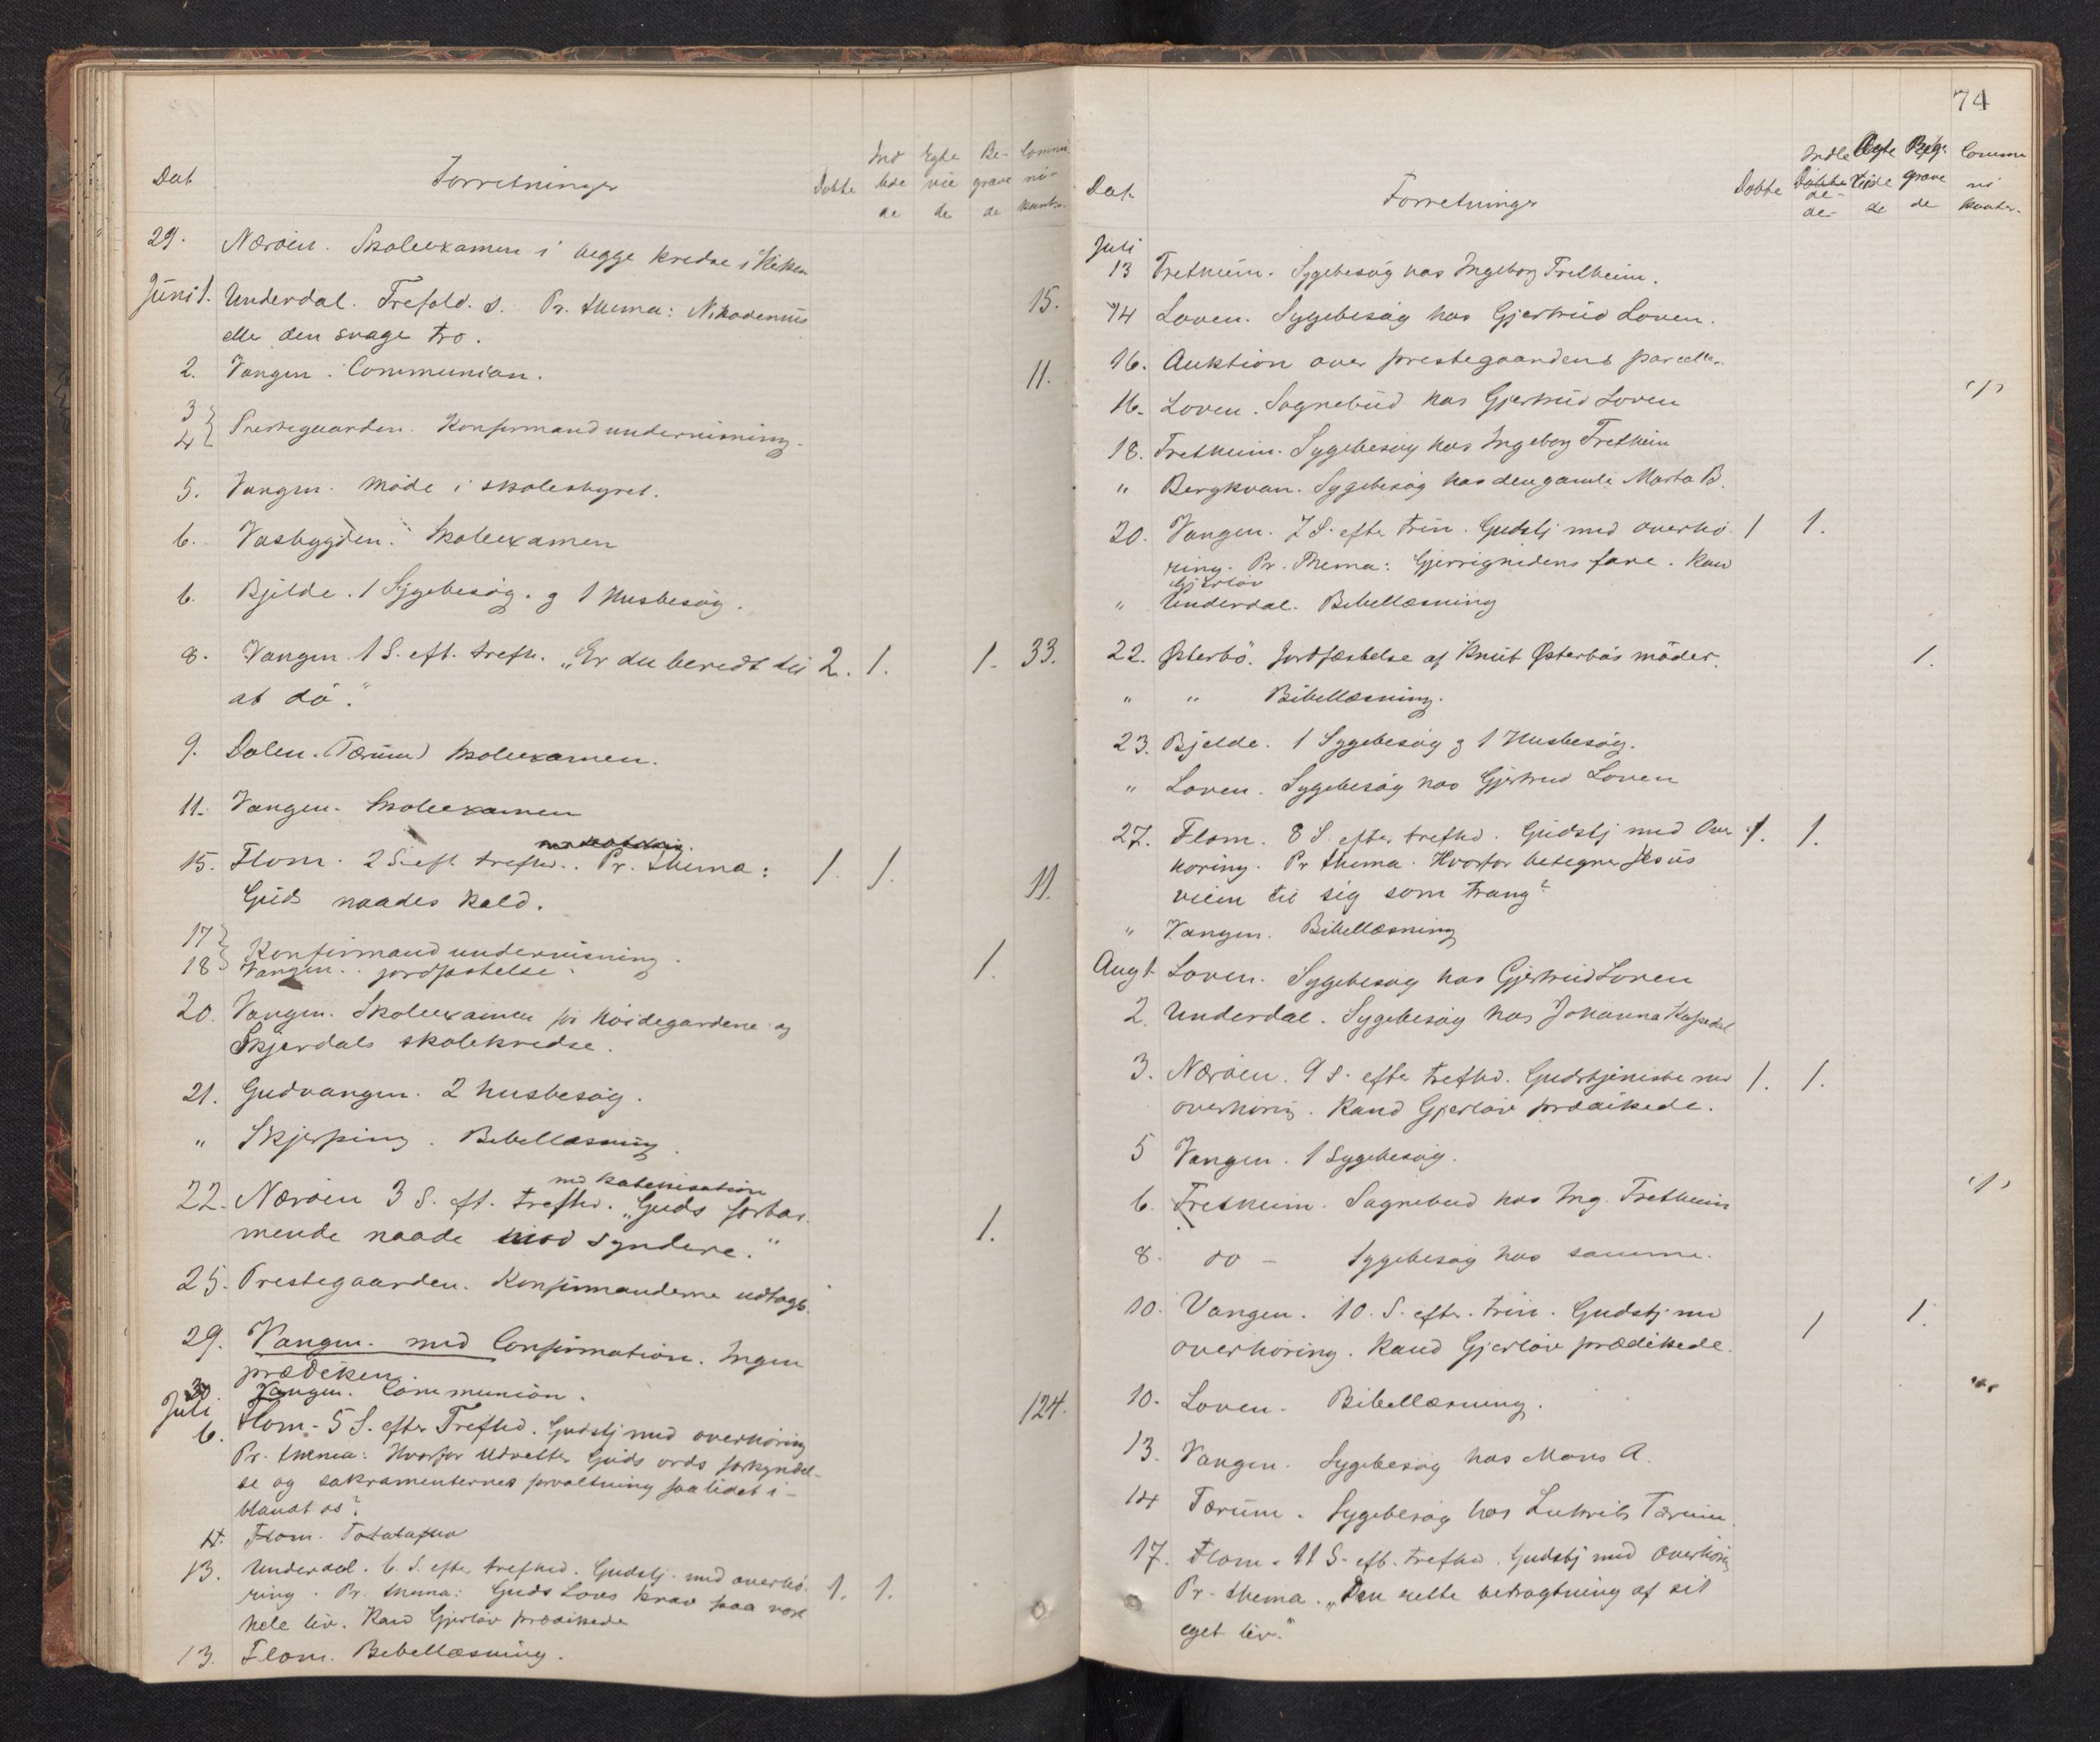 Dat Forretninger Døbte Indledede Egteviede Begravede Communikanter
29. Nærøien. Skoleexamen i begge kredse i Kirken
Juni 1. Underdal. Trefold. S. Pr. thema: Nikodemus 15.
elle den svage tro.
2. Vangen. Communion. 11.
3
4 } Prestegaarden. Konfirmandundervisning.
5. Vangen. Møde i skolestyret.
6. Vasbygden. Skoleexamen
6. Bjelde. 1 Sygebesøg. og 1 Husbesøg.
8. Vangen. 1 S. eft. trefh. „Er du beredt til 2. 1. 1. 33.
at dø."
9. Dalen. (Tærum) Skoleexamen.
11. Vangen. Skoleexamen
15. Flom. 2 S. eft. trefhd. Pr. thema: 1. 1.
Guds naades kald. 11.
17
18 } Konfirmandundervisning.
Vangen. jordfæstelse. 1.
20. Vangen. Skoleexamen for Høidegardene og
Skjerdals skolekredse.
21. Gudvangen. 2 husbesøg.
" Skjerping. Bibellæsning.
med katekisation
22. Nærøien 3 S. eft. trefhd. „Guds forbar-
mende naade mod syndere." 1.
25. Prestegaarden. Konfirmanderne udtoges.
29. Vangen. med Confirmation. Ingen
prædiken.
30. Vangen. Communion. 124.
Juli
6. Flom. 5 S. efter Trefhd. Gudstj med overhøring
Pr. thema: Hvorfor udretter Guds ords forkyndel-
se og sakramenternes forvaltning saa lidet i-
blandt os?
Flom.
13. Underdal. 6 S. efter trefhd. Gudstj. med overhø-
ring. Pr. thema: Guds Lovs krav paa vort 1. 1.
hele liv. Kand Gjerløv prædikede
13. Flom. Bibellæsning.
74
Dat. Forretninger Døbte Indledede Ægteviede Begravede Communikanter
Juli
13 Fretheim. Sygebesøg hos Ingeborg Fretheim.
14 Loven. Sygebesøg hos Gjertrud Loven.
16. Auktion over prestegaardens parceller.
16. Loven. Sognebud hos Gjertrud Loven (1)
18. Fretheim. Sygebesøg hos Ingeborg Fretheim
" Bergkvan. Sygebesøg hos den gamle Marta B.
20. Vangen. 7 S. efter trin. Gudstj med overhø- 1 1.
ring. Pr. Thema: Gjerrighedens fare. Kand
Gjerløv
" Underdal. Bibellæsning
22. Østerbø. Jordfæstelse af Knut Østerbøs moder. 1.
" " Bibellæsning.
23. Bjelde. 1 Sygebesøg og 1 Husbesøg.
" Loven. Sygebesøg hos Gjertrud Loven
27. Flom. 8 S. efter trefhd. Gudstj med Over 1. 1.
høring. Pr thema. Hvorfor betegner Jesus
veien til sig som trang?
" Vangen. Bibellæsning
Aug 1. Loven. Sygebesøg hos Gjertrud Loven
2. Underdal. Sygebesøg hos Johanna
3. Nærøien. 9 S. efter trefhd. Gudstjeneste med 1. 1.
overhøring. Kand Gjerløv prædikede.
5 Vangen. 1 Sygebesøg.
6. Fretheim. Sognebud hos Ing. Fretheim (1)
8. do - Sygebesøg hos samme.
10. Vangen. 10. S. efter. trin. Gudstj med 1 1.
overhøring. Kand Gjerløv prædikede.
10. Loven. Bibellæsning.
13. Vangen. Sygebesøg hos Mons A.
14 Tærum. Sygebesøg hos Tærum.
17. Flom. 11 S. eft. trefhd. Gudstj med Overhøring
Pr. thema. „Den rette betragtning af sit
eget liv."